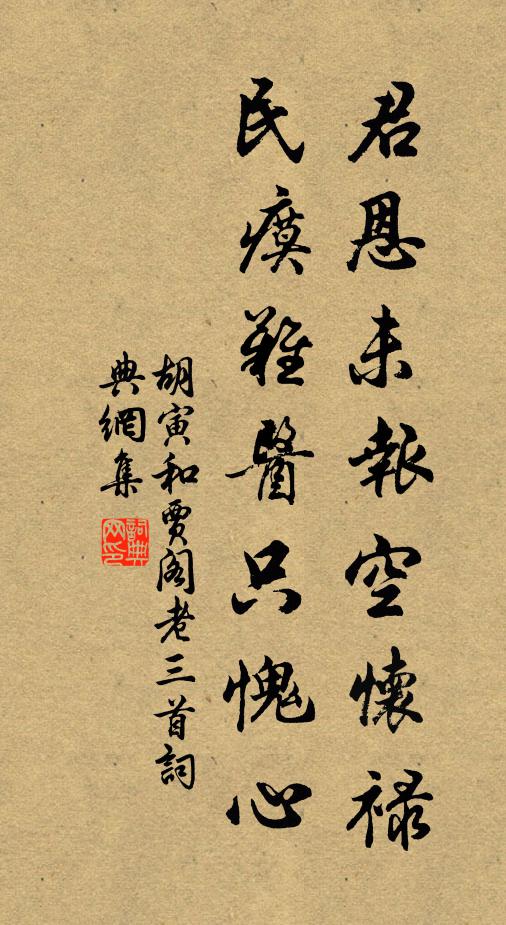 君恩未報空懷祿
民瘼難醫只愧心
胡寅和賈閣老三首詞
典網集
詞典網印